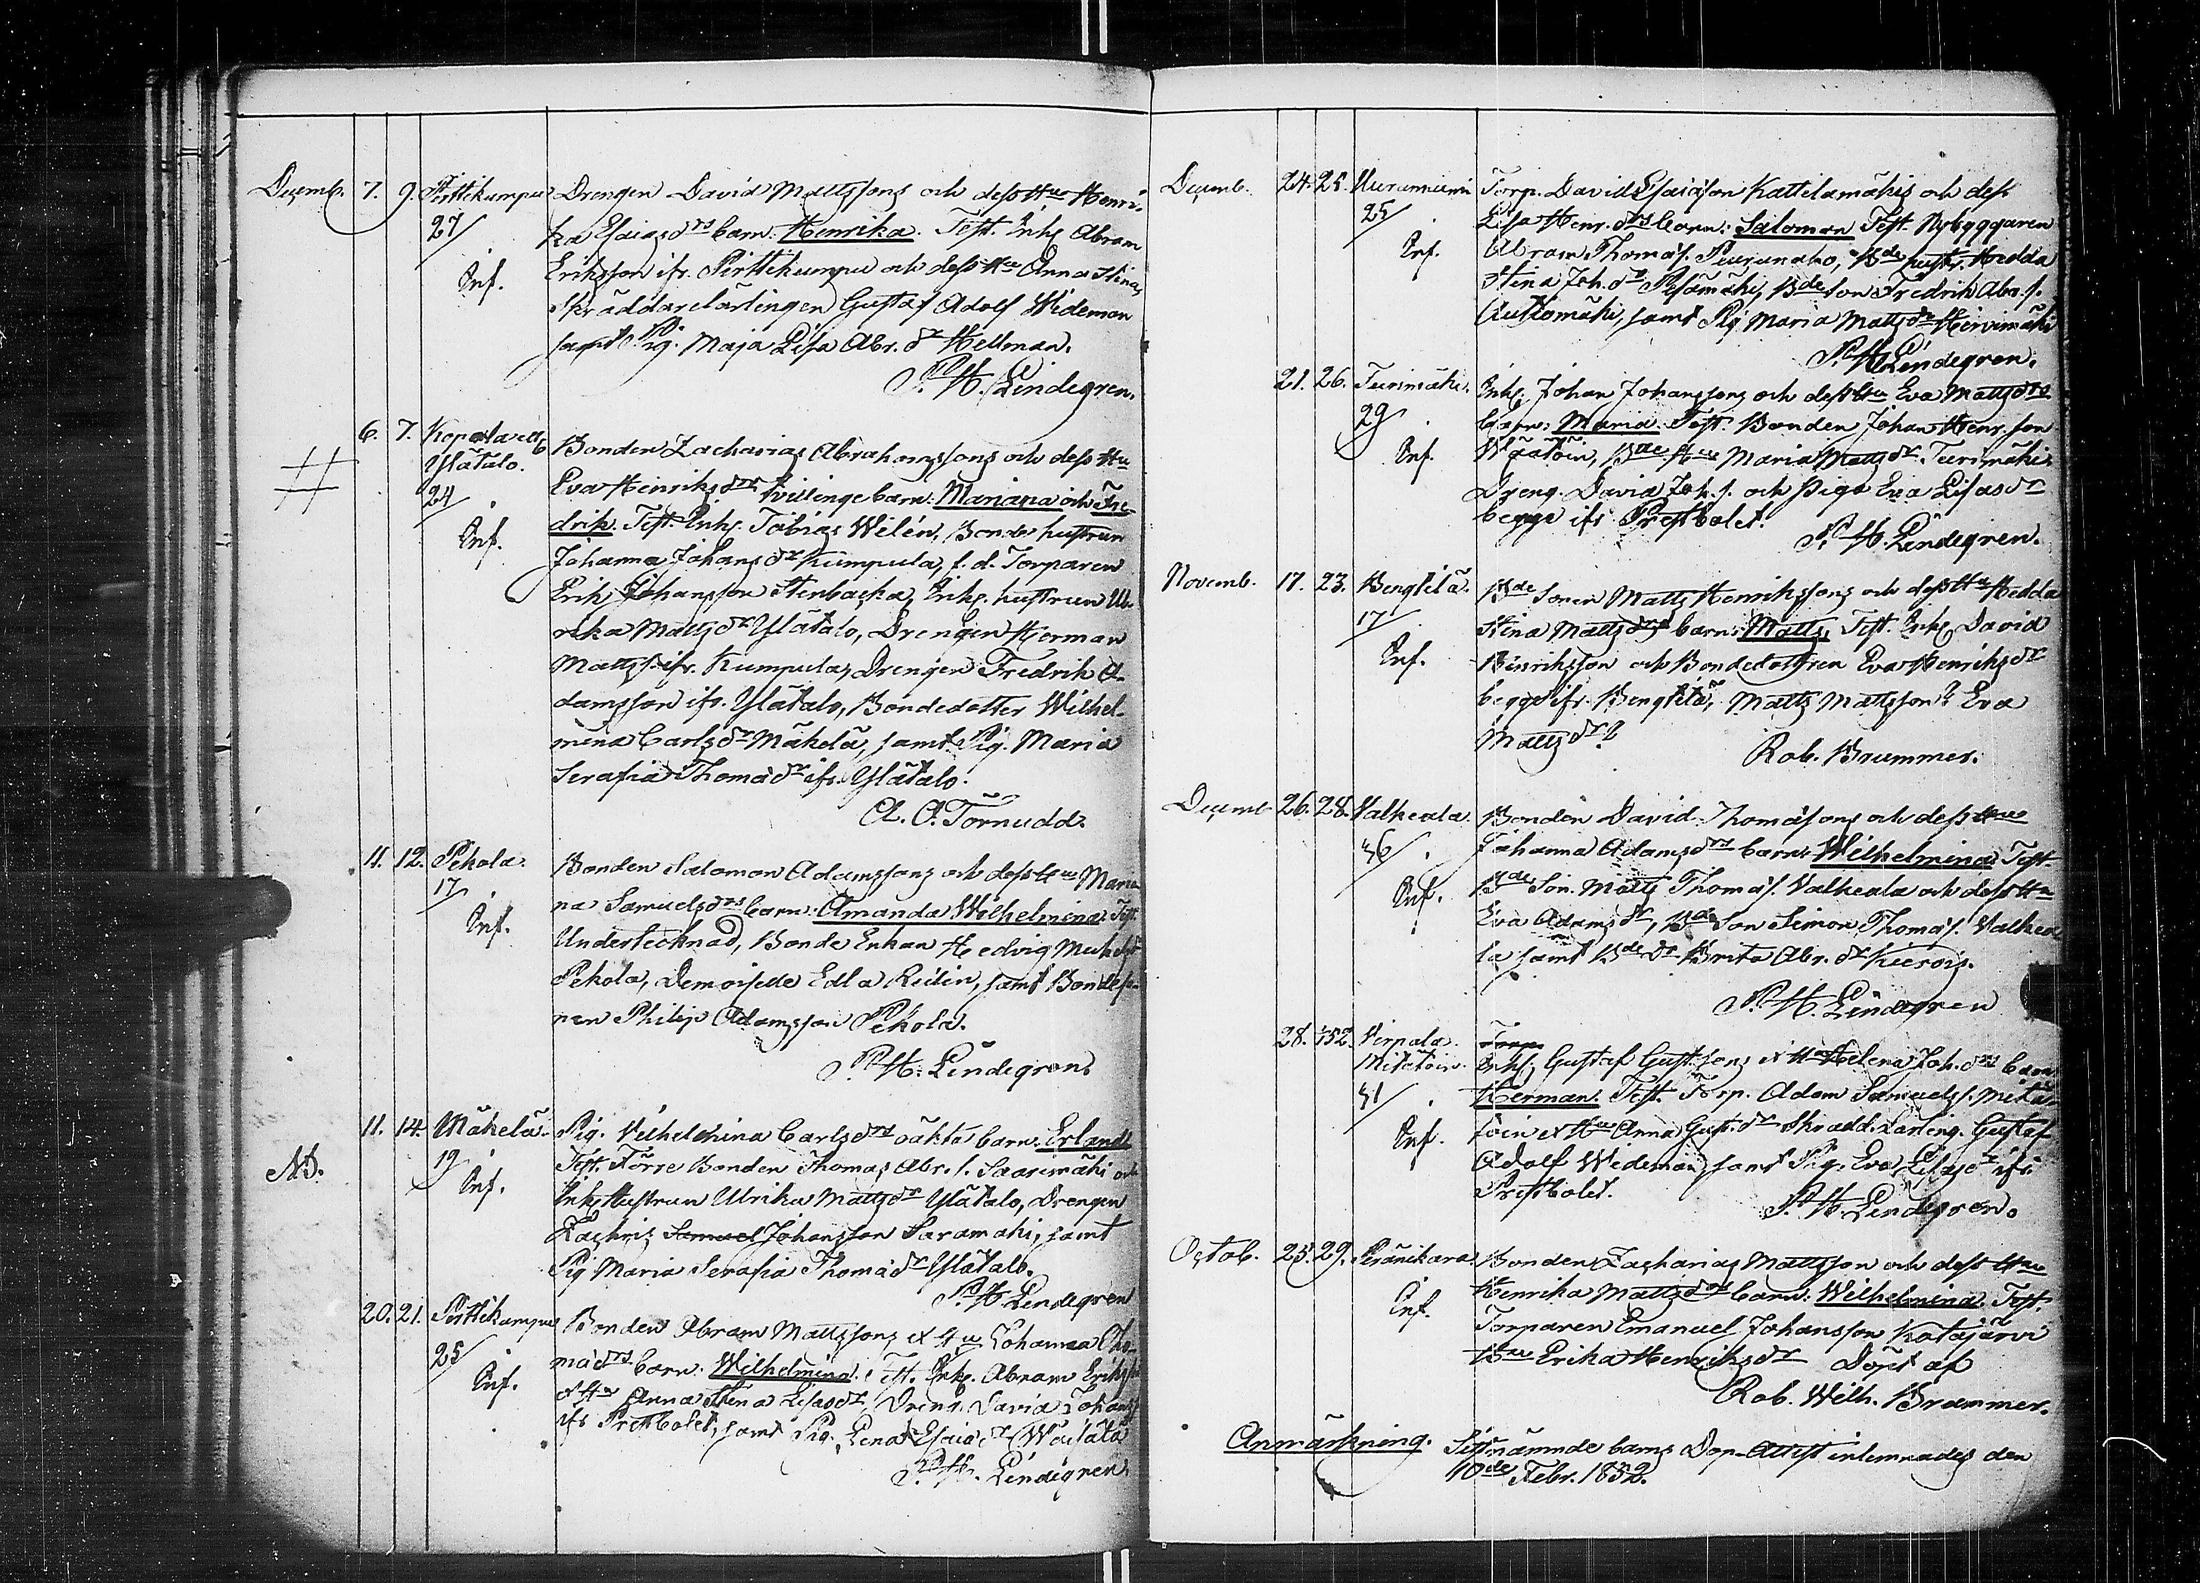 Decemb. 7. 9. Pirttikumpu Drengen David Mattssons och dess Hu Henri-
27/ ka Esaiasdrs barn: Henrika. Test. Inh. Abram
Inf. Eriksson ifr. Pirttikumpu och dess Hu Anna Stina,
Skräddarelärlingen Gustaf Adolf Wideman
samt Pig. Maja Lisa Abr. dr Hellman.
P. H. Lindegren.
6. 7. Ylätalo. Bonden Zacharias Abrahamssons och dess Hu
24/ Eva Henriksdrs tvillingebarn: Mariana och Fre-
Inf. drik. Test. Inh. Tobias Wilén, Bonde hustrun
Johanna Johansdr Kumpula, f. d. Torparen
Erik Johansson Stenbacka, Inh. hustrun Ul-
rika Mattsdr Ylätalo, Drengen Herman
Matts. ifr. Kumpula, Drengen Fredrik A-
damsson ifr. Ylätalo, Bondedotter Wilhel-
mina Carlsdr Mäkelä, samt Pig. Maria
Serafia Thomädr ifr. Ylätalo.
A. A. Törnudd.
11. 12. Pekola. Bonden Salomon Adamssons och dess Hu Maria-
17/ na Samuelsdrs barn: Amanda Wilhelmina. Test.
Inf. Undertecknad, Bonde Enkan Hedvig
Pekola, Demoiselle Edla Relin, samt Bondeso-
nen Philip Adamsson Pekola.
P. H. Lindegren.
11. 14. Mäkelä. Pig. Vilhelmina Carlsdrs oäkta barn: Erland
NB. 19/ Test. Förre Bonden Thomas Abr. s. Saarimäki och
Inf. Inh. Hustrun Ulrika Mattsdr Ylätalo, Drengen
Zachris Samuel Johansson Saramäki, samt
Pig Maria Serafia Thomädr Ylätalo.
P. H. Lindegren
20. 21. Pirttikumpu Bonden Abram Mattssons et Hu Johanna Tho-
25/ mädrs barn: Wilhelmina. Test. Inh. Abram Eriksson
Inf. et Hu Anna Stina Esasdr, Dreng. David Johans.
ifr Prestbolet, samt Pig. Lena Esaiædr
P. H. Lindegren.
Decemb. 24. 25. Torp. David Esaiasson Kattelamäkis och dess
25/ Lisa Henr. drs barn: Salomon Test. Nybyggaren
Inf. Abram Thomas. Peurunaho, Bde hustr. Hedda
Stina Joh. dr Pesämäki, Bde son Fredrik Abr. s.
Autiomäki, samt Pig Maria Mattsdr Hirvimäki
P. H. Lindegren.
21. 26. Turimäki. Inh. Johan Johanssons och dess Hu Eva Mattsdrs
29/ barn: Maria. Test. Bonden Johan Henr. son
Inf. Bde Hu Maria Mattsdr Turimäki,
Dreng. David Joh. s. och Piga Eva Lisasdr
begge ifr Prestbolet.
P. H. Lindegren.
Novemb. 17. 23. Bengtilä. Bde Sonen Matts Henrikssons och dess Hu Hedda
17/ Stina Mattsdrs barn: Matts, Test. Inh. David
Inf. Henriksson och Bondedottren Eva Henriksdr
begge ifr. Bengtilä, Matts Mattsson? Eva
Mattsdr?
Rob. Brummer.
Decemb. 26. 28. Valkeala. Bonden David Thomäsons och dess Hu
36/ Johanna Adamsdrs barn: Wilhelmina Test.
Inf. Bde Son. Matts Thomas. Valkeala och dess Hu
Eva Adamsdr, Bde Son Simon Thomäs. Valkea-
la samt Bde Dr Brita Abr. dr
P. H. Lindegren
28. 1/52. Virpala. Torp.
Inh. Gustaf Gust. sons et Hu Helena Joh. drs barn
31/ Herman. Test. Torp. Adam Samuels.
Inf. et Hu Anna Gust. dr Skrädd. Lärling. Gustaf
Adolf Wideman, samt Pig. Eva Lisasdr ifr
Prestbolet.
P. H. Lindegren.
Octob. 25. 29. Peränikara. Bonden Zacharias Mattsson och dess Hu
Inf. Henrika Mattsdrs barn: Wilhelmina. Test.
Torparen Emanuel Johansson Katajärvi
Hu Erika Henriksdr Döpt af
Rob. Wilh. Brummer.
Anmärkning. Sistnämnde barns Dop-Attest inlemnades den
10de Febr. 1852.